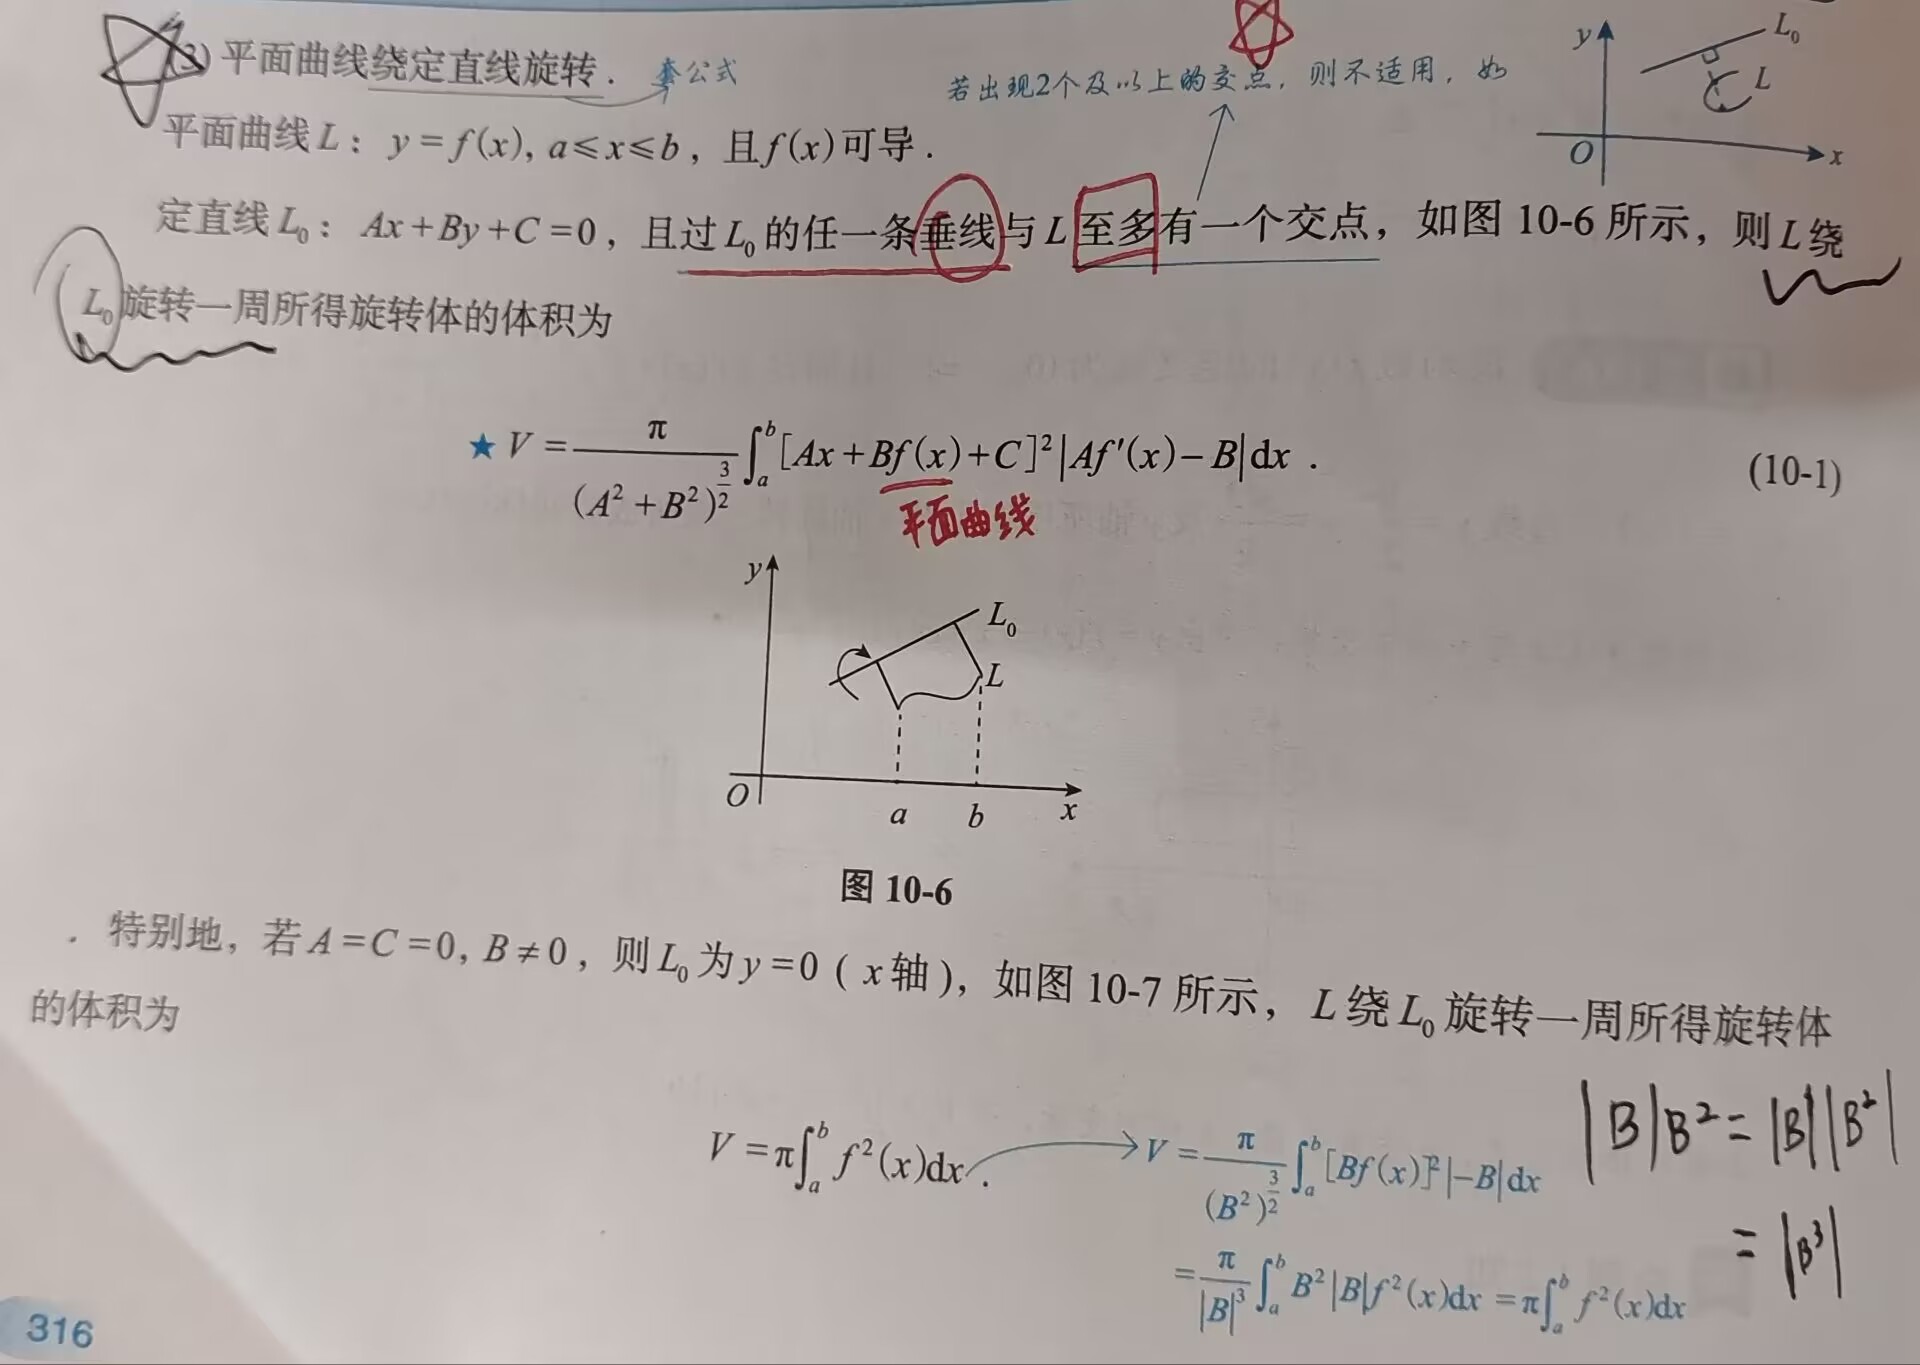 (3) 平面曲线绕定直线旋转. 套公式
若出现2个及以上的交点, 则不适用, 如
y L₀ L O x
平面曲线 L: y=f(x), a≤x≤b, 且f(x)可导.
定直线 L₀: Ax+By+C=0, 且过 L₀ 的任一条垂线与 L 至多有一个交点, 如图 10-6 所示, 则 L 绕
L₀ 旋转一周所得旋转体的体积为
★ V = π/(A²+B²)^(3/2) ∫_a^b [Ax+Bf(x)+C]²|Af′(x)−B|dx. (10-1)
平面曲线
y
L₀
L
O a b x
图 10-6
特别地, 若 A=C=0, B≠0, 则 L₀ 为 y=0 (x轴), 如图 10-7 所示, L 绕 L₀ 旋转一周所得旋转体
的体积为
V=π∫_a^b f²(x)dx. V = π/(B²)^(3/2) ∫_a^b [Bf(x)]²|−B|dx
= π/|B|³ ∫_a^b B²|B|f²(x)dx = π∫_a^b f²(x)dx
|B|B² = |B||B²|
= |B³|
316